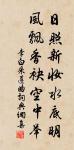 日照新妝水底明
風飄香袂空中舉
李白采蓮曲詞興調集